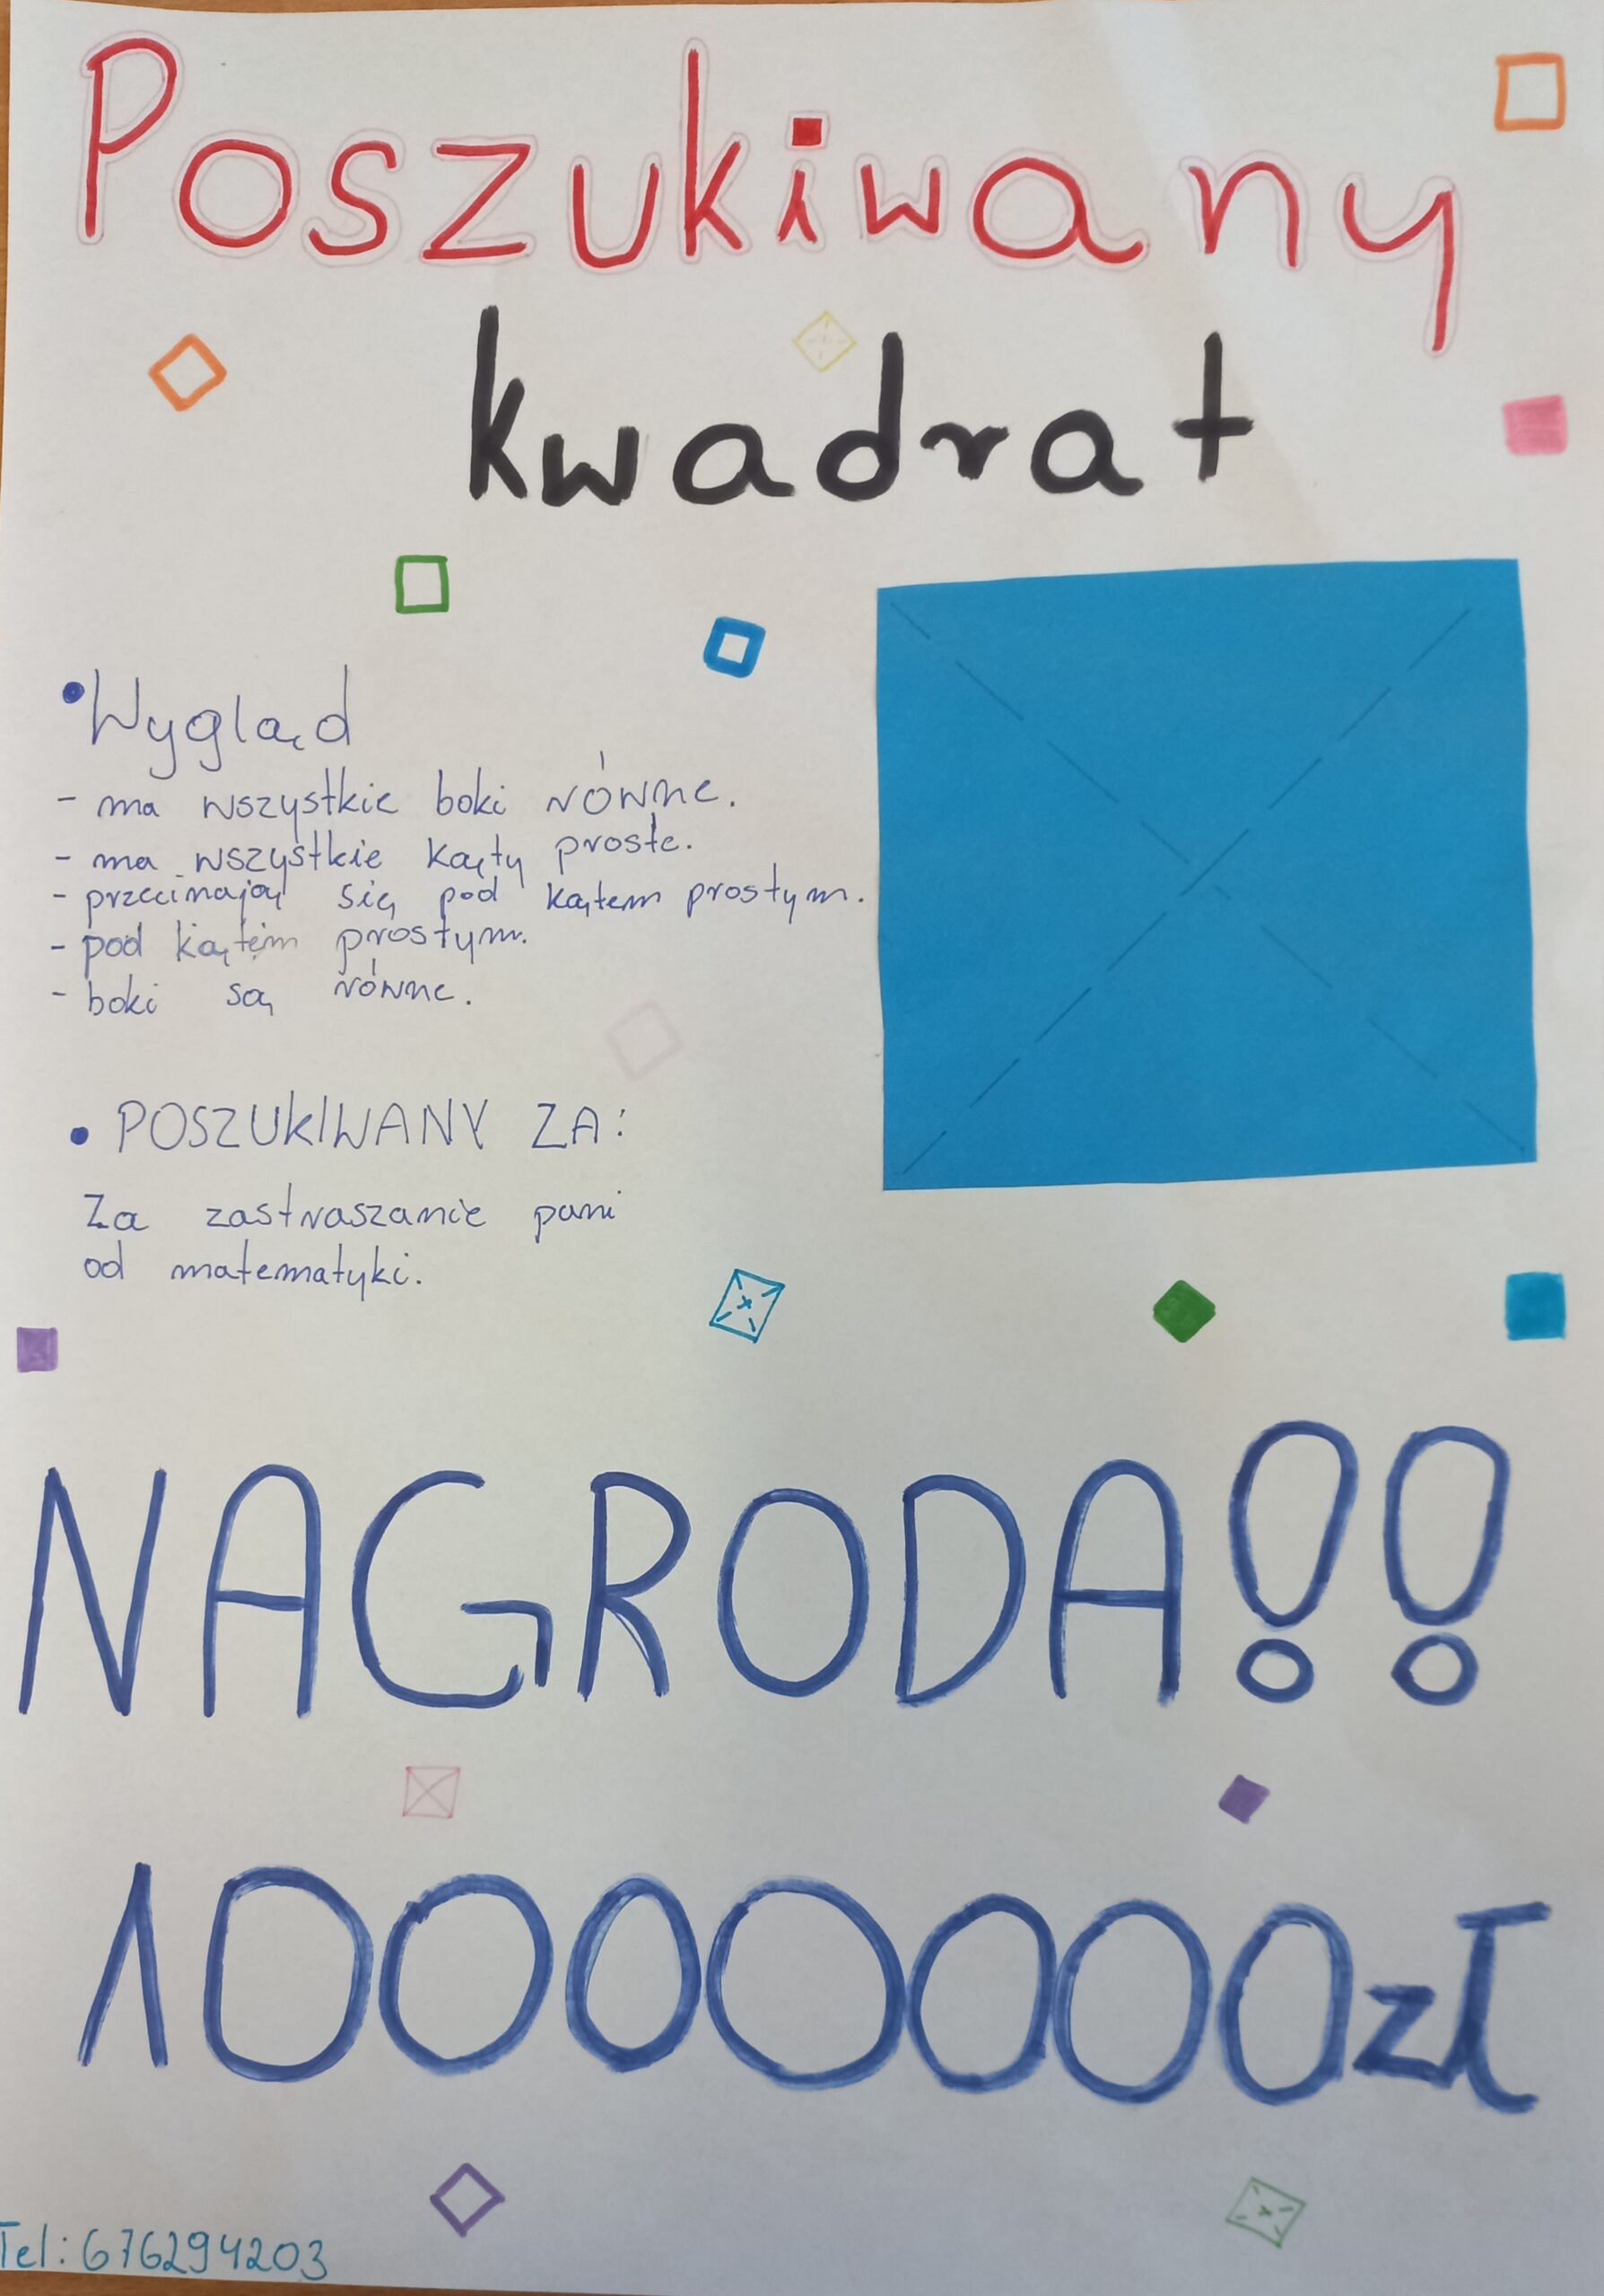 Poszukiwany
kwadrat
• Wygląd
- ma wszystkie boki równe.
- ma wszystkie kąty proste.
- przecinają się pod kątem prostym.
- pod kątem prostym.
- boki są równe.
• POSZUKIWANY ZA:
Za zastraszanie pani
od matematyki.
NAGRODA!!
10000000zł
Tel: 676294203